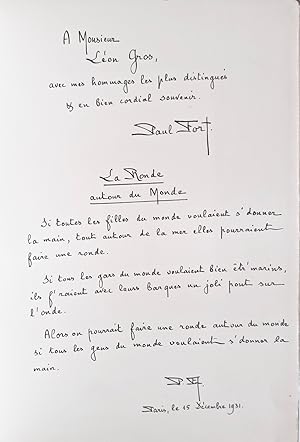 A Monsieur
Léon Gros,
avec mes hommages les plus distingués
& en bien cordial souvenir.
Paul Fort.
La Ronde
autour du Monde
Si toutes les filles du monde voulaient s'donner
la main, tout autour de la mer elles pourraient
faire une ronde.
Si tous les gars du monde voulaient bien êtr'marins,
ils f'raient avec leurs barques un joli pont sur
l'onde.
Alors on pourrait faire une ronde autour du monde
si tous les gens du monde voulaient s'donner la
main.
P. F.
Paris, le 15 Décembre 1931.